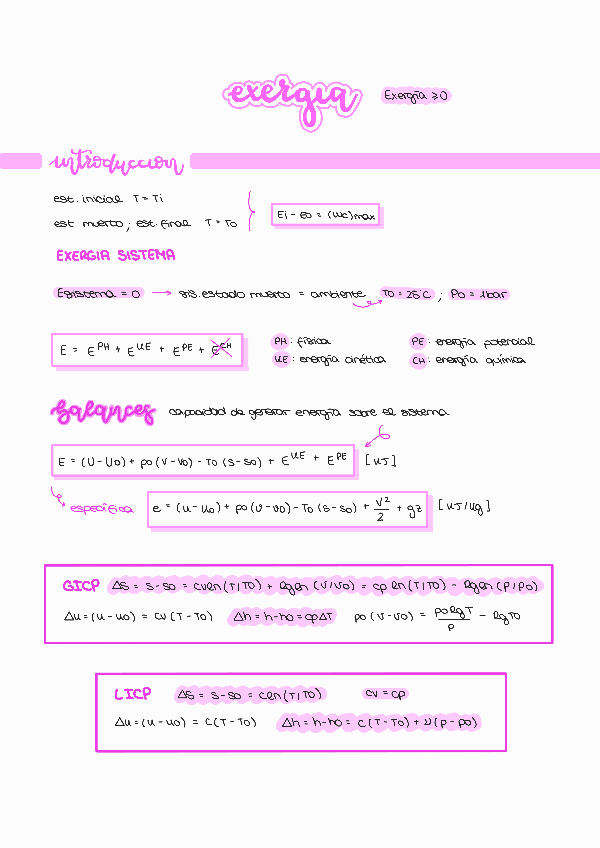 exergia
Exergía ≥ 0
introduccion
est. inicial T = Ti
est muerto; est. final T = To
Ei - eo = (Wc)max
EXERGIA SISTEMA
Esistema = 0 → sis. estado muerto = ambiente To = 25°C ; Po = 1bar
E = E^PH + E^KE + E^PE + E^CH
PH: física
PE: energía potencial
KE: energía cinética
CH: energía química
balances capacidad de generar energía sobre el sistema
E = (U - Uo) + po(V - Vo) - To(S - So) + E^KE + E^PE [KJ]
específica e = (u - uo) + po(v - vo) - To(s - so) + V²/2 + gz [KJ/Kg]
GICP Δs = s - so = cv ln(T/To) + Rg ln(V/Vo) = cp ln(T/To) - Rg ln(P/Po)
Δu = (u - uo) = cv(T - To) Δh = h - ho = cpΔT po(v - vo) = poRgT/p - RgTo
LICP Δs = s - so = c ln(T/To) cv = cp
Δu = (u - uo) = c(T - To) Δh = h - ho = c(T - To) + v(p - po)